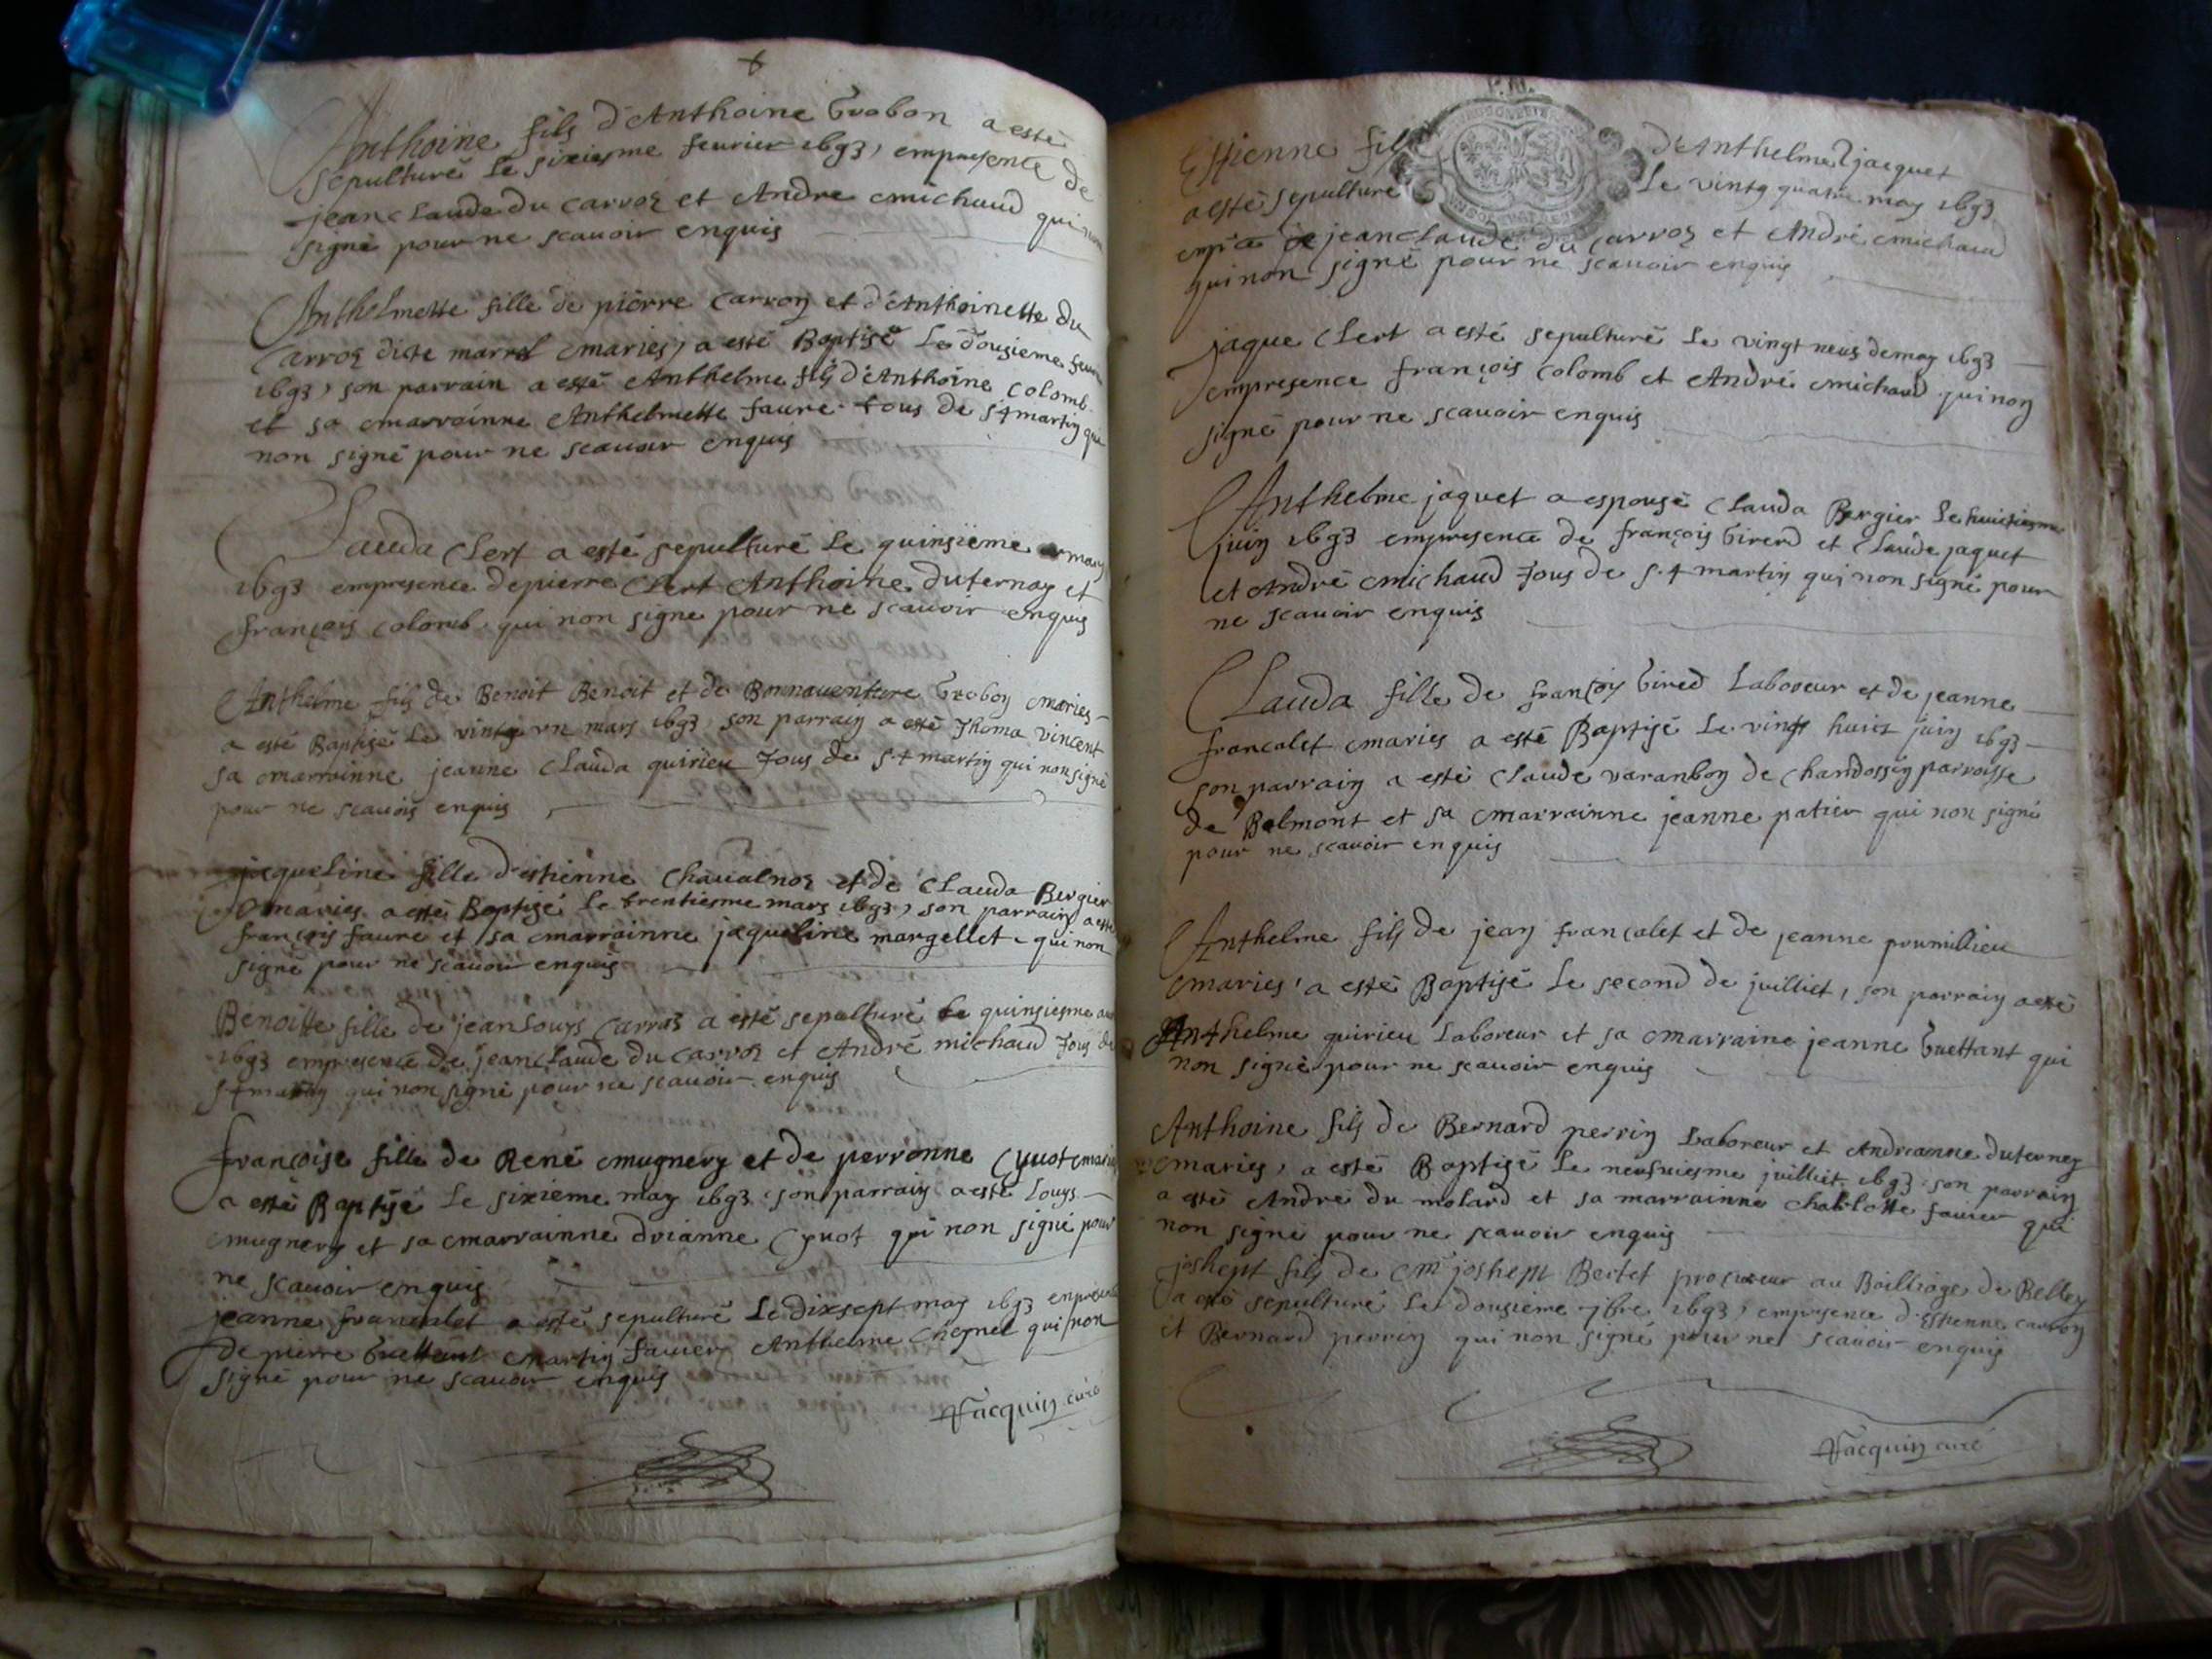 Anthoine fils d'Anthoine Grobon a esté
sepulturé le sixiesme feurier 1693, empresence de
jean claude du carroz et André michaud qui non
signé pour ne scauoir enquis
Anthelmette fille de pierre carron et d'Anthoinette du
carroz dicte marrel maries, a esté Baptisé le dousieme feurier
1693, son parrain a esté Anthelme fils d'Anthoine colomb
et sa marrainne Anthelmette faure tous de st martin qui
non signé pour ne scauoir enquis
Clauda Clert a esté sepulturé le quinsieme mars
1693 empresence de pierre Clert Anthoine duternay et
françois colomb qui non signe pour ne scauoir enquis
Anthelme fils de Benoit Benoit et de Bonnauenture Grobon maries
a esté Baptisé le vingt vn mars 1693, son parrain a esté Thoma vincent
sa marrainne jeanne Clauda quirieu Tous de st martin qui non signé
pour ne scauois enquis
jaqueline fille d'estienne Chaualnoz et de Clauda Bergier
maries a esté Baptisé le trentiesme mars 1693, son parrain a esté
françois faure et sa marrainne jaqueline margellet qui non
signé pour ne scauoir enquis
Benoitte fille de jean Louys Carroz a esté sepulturé le quinsiesme
1693 empresence de jean Claude du carroz et André michaud Tous de
st martin qui non signé pour ne scauoir enquis
françoise fille de René mugnery et de perronne Cyuot maries
a esté Baptisé le sixieme may 1693 son parrain a esté Louys
mugnery et sa marrainne drianne Cyuot qui non signé pour
ne scauoir enquis
jeanne francalet a esté sepulturé le dixsept may 1693 enpresence
de pierre Guettant martin fauier Anthelme Chegnel qui non
signé pour ne scauoir enquis
Jacquin curé
Estienne fils d'Anthelme jacquet
a esté sepulturé le vintg quatre may 1693
de jean Claude du carroz et André michaud
qui non signé pour ne scauoir enquis
jaque Clert a esté sepulturé le vingt neuf de may 1693
empresence françois Colomb et André michaud qui non
signé pour ne scauoir enquis
Anthelme jaquet a espousé Clauda Bergier le huictiesme
juin 1693 empresence de françois Girerd et Claude jaquet
et André michaud Tous de st martin qui non signé pour
ne scauoir enquis
Clauda fille de françois Gired Laboreur et de jeanne
francalet maries a esté Baptisé le vingt huict juin 1693
son parrain a esté Claude varanbon de Chandossin parroisse
de Belmont et sa marrainne jeanne patier qui non signé
pour ne scauoir enquis
Anthelme fils de jean francalet et de jeanne prumillieu
maries, a esté Baptisé le second de juilliet, son parrain a esté
Anthelme quirieu Laboreur et sa marraine jeanne Guettant qui
non signé pour ne scauoir enquis
Anthoine fils de Bernard perrin Laboreur et Andreanne duterney
maries, a esté Baptisé le neufuiesme juilliet 1693 son parrain
a esté André du molard et sa marrainne charlotte fauier qui
non signé pour ne scauoir enquis
joshept fils de mr joshept Bertet procureur au Bailliage de Belley
a esté sepulturé le dousieme 7bre 1693, empresence d'Estienne carron
et Bernard perrin qui non signé pour ne scauoir enquis
Jacquin curé